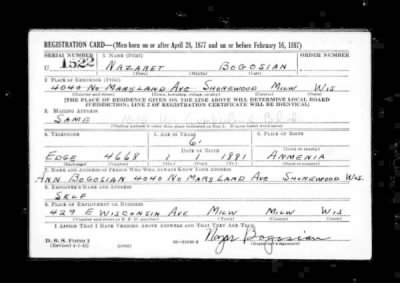 REGISTRATION CARD—(Men born on or after April 28, 1877 and on or before February 16, 1897)
SERIAL NUMBER 1. NAME (Print) ORDER NUMBER
U 1522 NAZARET BOGOSIAN
(First) (Middle) (Last)
2. PLACE OF RESIDENCE (Print)
4040 NO MARYLAND AVE SHOREWOOD MILW WIS
(Number and street) (Town, township, village, or city) (County) (State)
[THE PLACE OF RESIDENCE GIVEN ON THE LINE ABOVE WILL DETERMINE LOCAL BOARD
JURISDICTION; LINE 2 OF REGISTRATION CERTIFICATE WILL BE IDENTICAL]
3. MAILING ADDRESS
SAME
[Mailing address if other than place indicated on line 2. If same insert word same]
4. TELEPHONE 5. AGE IN YEARS 6. PLACE OF BIRTH
61
DATE OF BIRTH (Town or county)
EDGE 4668 1 1881 ARMENIA
(Exchange) (Number) (Mo.) (Day) (Yr.) (State or country)
7. NAME AND ADDRESS OF PERSON WHO WILL ALWAYS KNOW YOUR ADDRESS
ANN BOGOSIAN 4040 NO MARYLAND AVE SHOREWOOD WIS.
8. EMPLOYER'S NAME AND ADDRESS
SELF
9. PLACE OF EMPLOYMENT OR BUSINESS
429 E WISCONSIN AVE MILW MILW WIS
(Number and street or R. F. D. number) (Town) (County) (State)
I AFFIRM THAT I HAVE VERIFIED ABOVE ANSWERS AND THAT THEY ARE TRUE.
D. S. S. Form 1
(Revised 4-1-42) (over) Bogosian
(Registrant's signature)